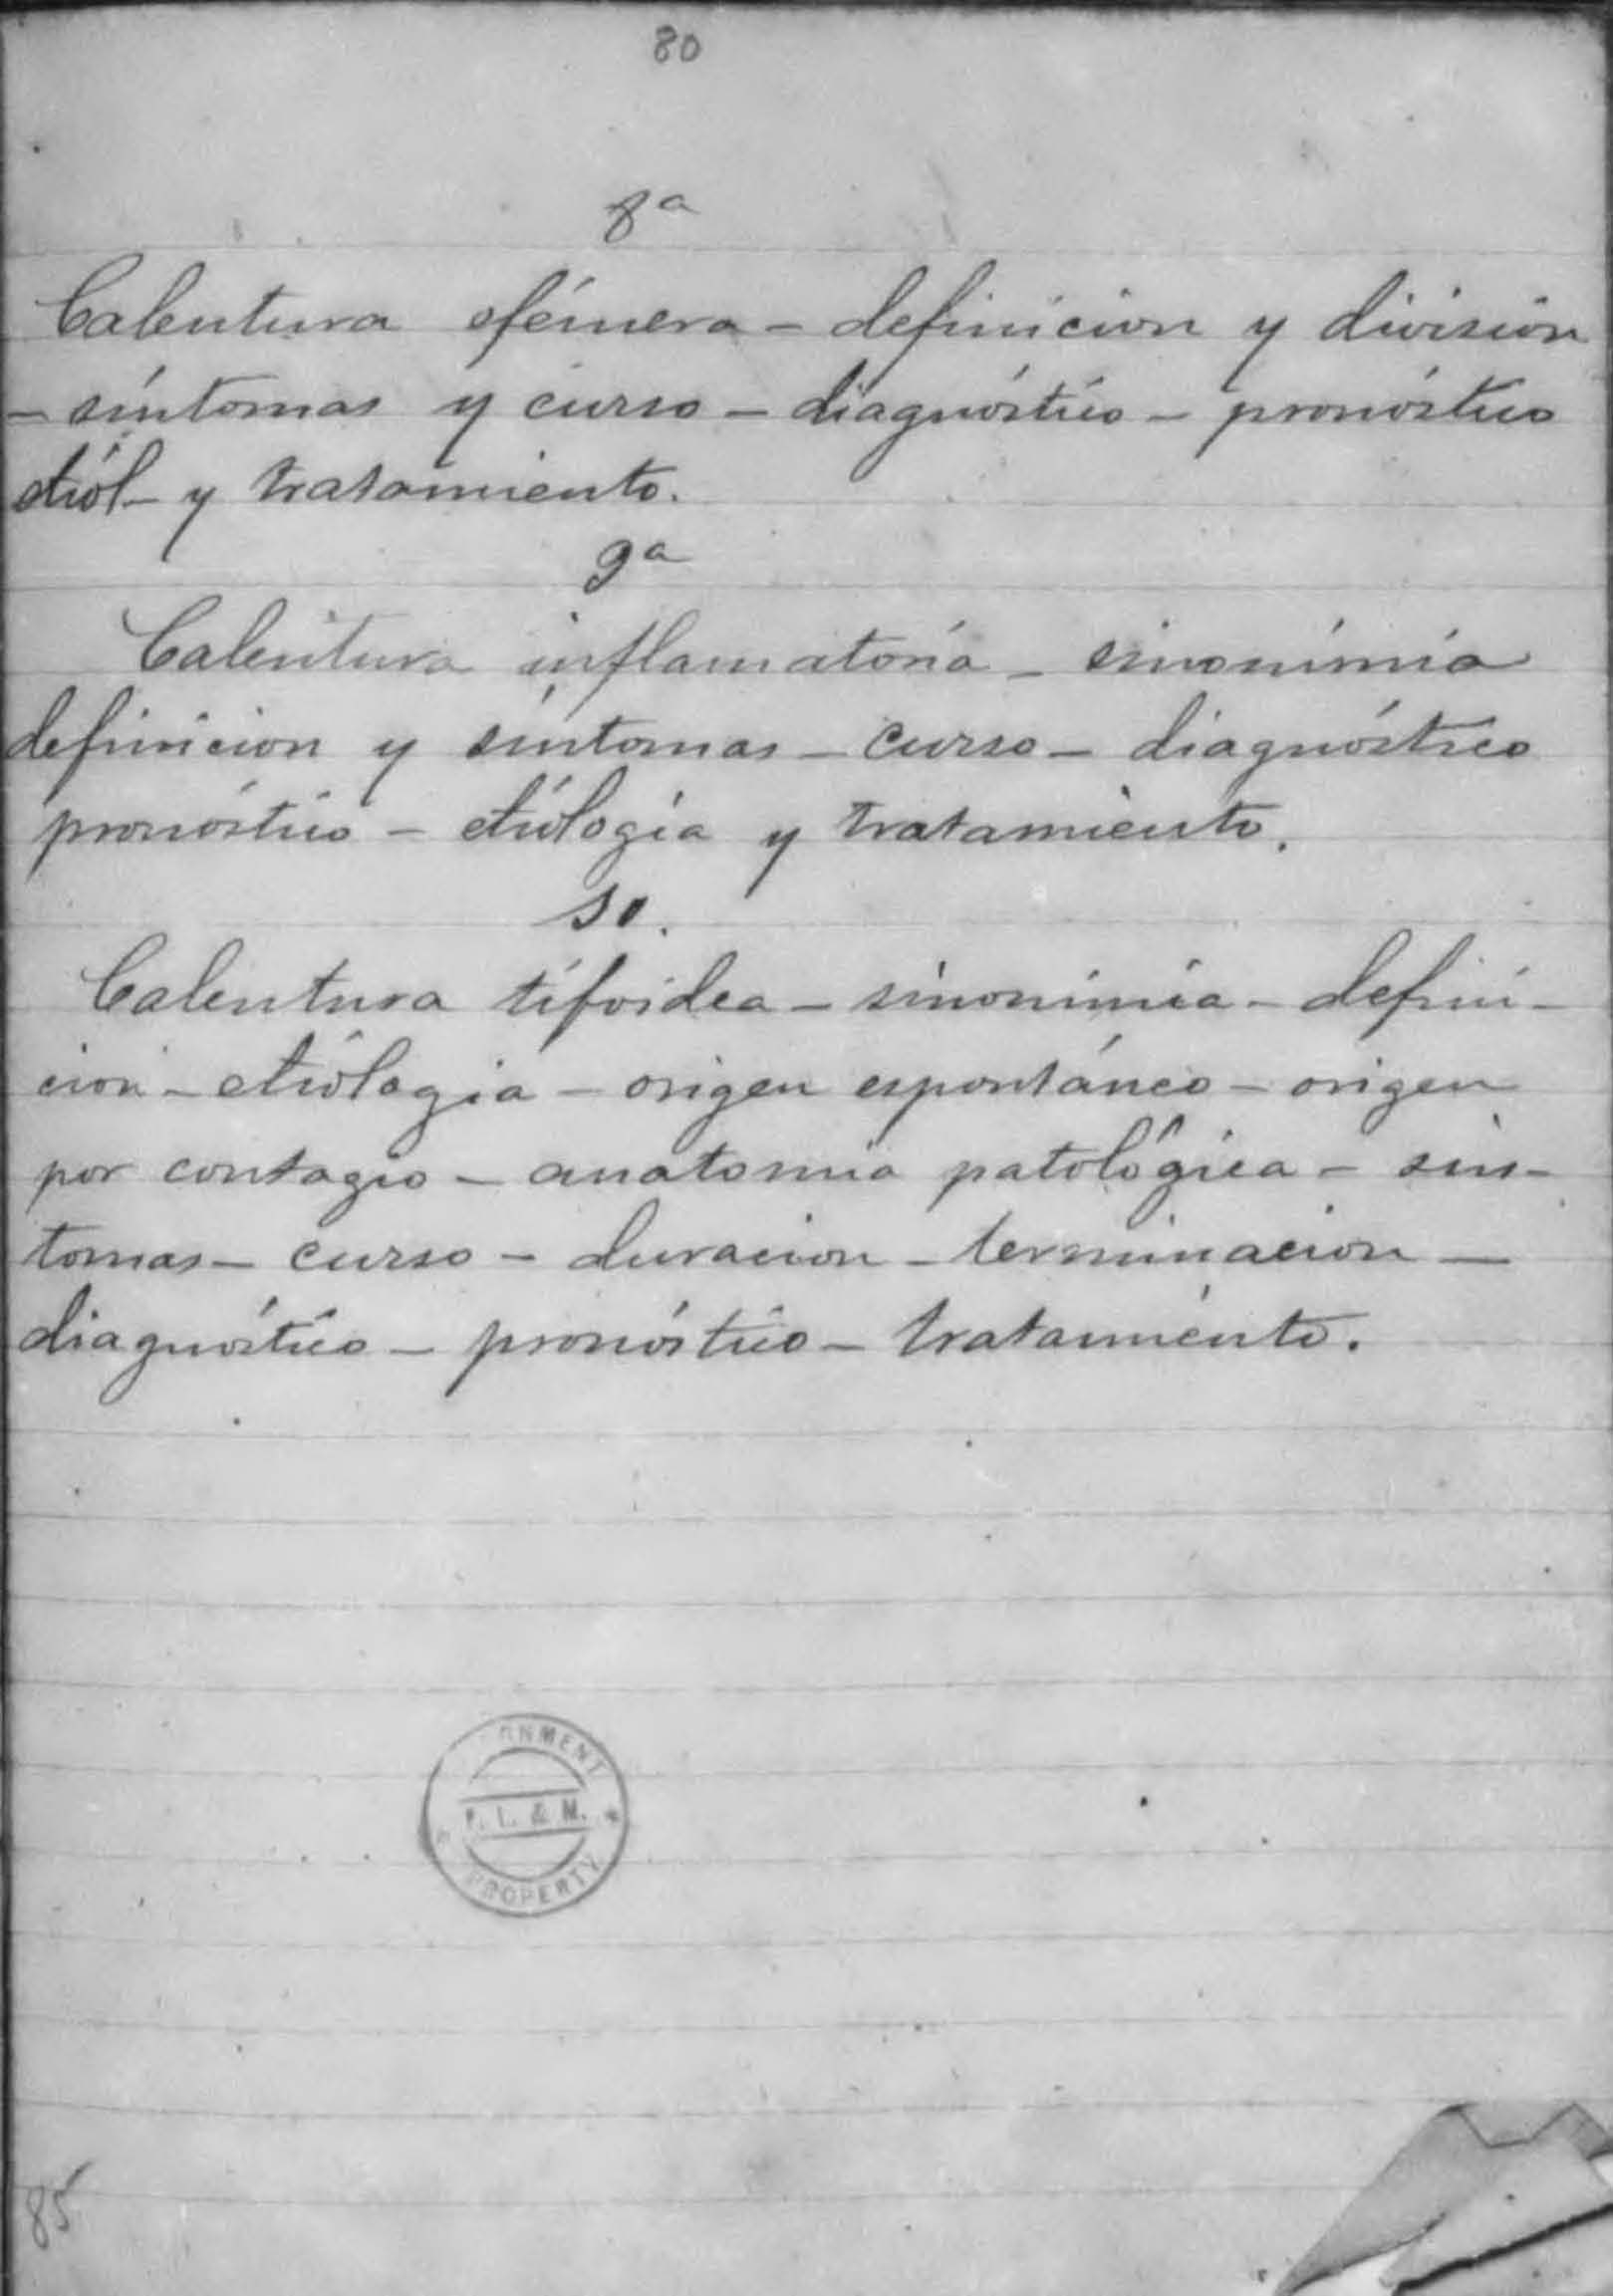 80
8ª
Calentura efémera - definicion y division
- síntomas y curso - diagnóstico - pronóstico
etiól - y tratamiento.
9ª
Calentura inflamatoria - sinonimia
definicion y síntomas - curso - diagnóstico
pronóstico - etiología y tratamiento.
10.
Calentura tifoidea - sinonimia - defini-
cion - etiología - origen espontáneo - origen
por contagio - anatomia patológica - sin-
tomas - curso - duracion - terminacion -
diagnóstico - pronóstico - tratamiento.
NMENT
L. & M.
PROPERTY
85